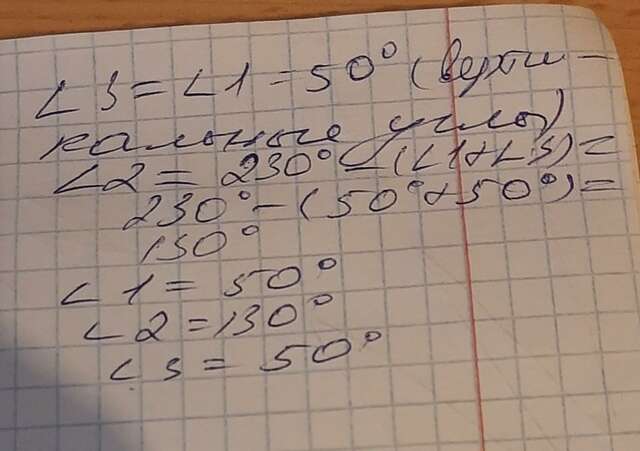 ∠3 = ∠1 = 50° (верти-
кальные углы)
∠2 = 230° - (∠1+∠3) =
230° - (50°+50°) =
130°
∠1 = 50°
∠2 = 130°
∠3 = 50°